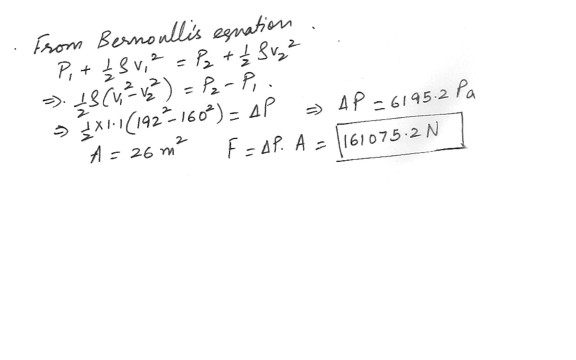 . From Bernoulli's equation.
P₁ + ½ρv₁² = P₂ + ½ρv₂²
⇒. ½ρ(v₁²-v₂²) = P₂ - P₁.
⇒ ½×1·1(192²-160²) = ΔP ⇒ ΔP = 6195·2 Pa
A = 26 m² F = ΔP. A = 161075·2 N